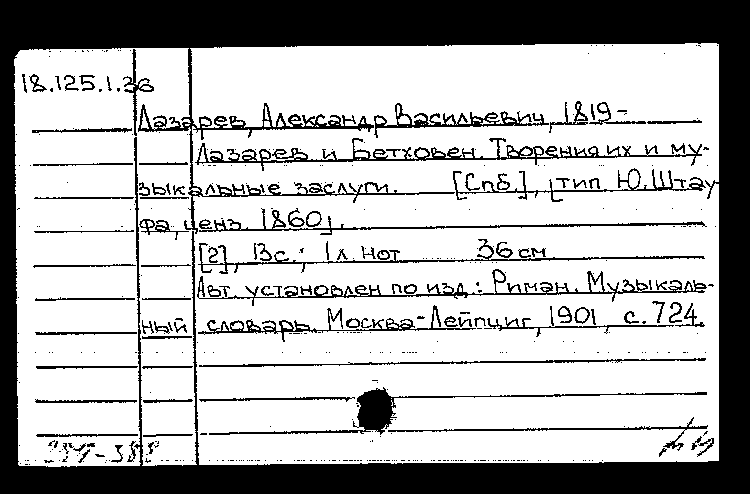 18.125.1.36
Лазарев, Александр Васильевич, 1819-
Лазарев и Бетховен. Творения их и му-
зыкальные заслуги. [Спб.], [тип. Ю. Штау-
фа, ценз. 1860].
[2], 13 с.; 1 л. нот 36 см
Авт. установлен по изд.: Риман. Музыкаль-
ный словарь. Москва-Лейпциг, 1901, с. 724.